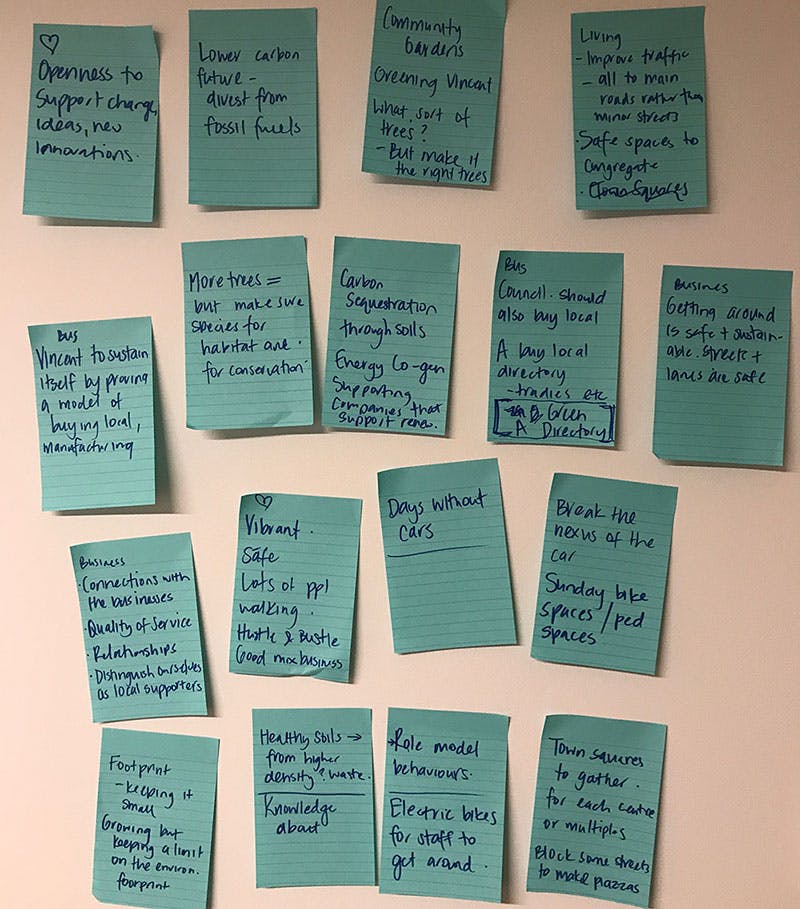 Openness to
Support change,
ideas, new
innovations.
Lower carbon
future -
divest from
fossil fuels
Community
Gardens
Greening Vincent
What sort of
trees?
- But make it
the right trees
Living
- Improve traffic
- all to main
roads rather than
minor streets
· Safe spaces to
congregate
· Town Squares
Bus
Vincent to sustain
itself by proving
a model of
buying local,
manufacturing
More trees =
but make sure
species for
habitat and
for conservation
Carbon
Sequestration
through soils
Energy Co-gen
Supporting
Companies that
support renew.
Bus
Council. should
also buy local
A buy local
directory
- tradies etc
Green
A Directory
Busines
Getting around
is safe + sustain-
able. streets +
lanes are safe
Business
· Connections with
the businesses
· Quality of Service
· Relationships
· Distinguish ourselves
as local supporters
Vibrant.
Safe
Lots of ppl
walking.
Hustle & Bustle
Good mix business
Days without
cars
Break the
nexus of the
car
Sunday bike
spaces / ped
spaces
Footprint
- keeping it
small
Growing but
keeping a limit
on the environ.
footprint
Healthy soils →
from higher
density? waste.
Knowledge
about
→ Role model
behaviours.
Electric bikes
for staff to
get around.
Town squares
to gather.
for each centre
or multiples
Block some streets
to make piazzas